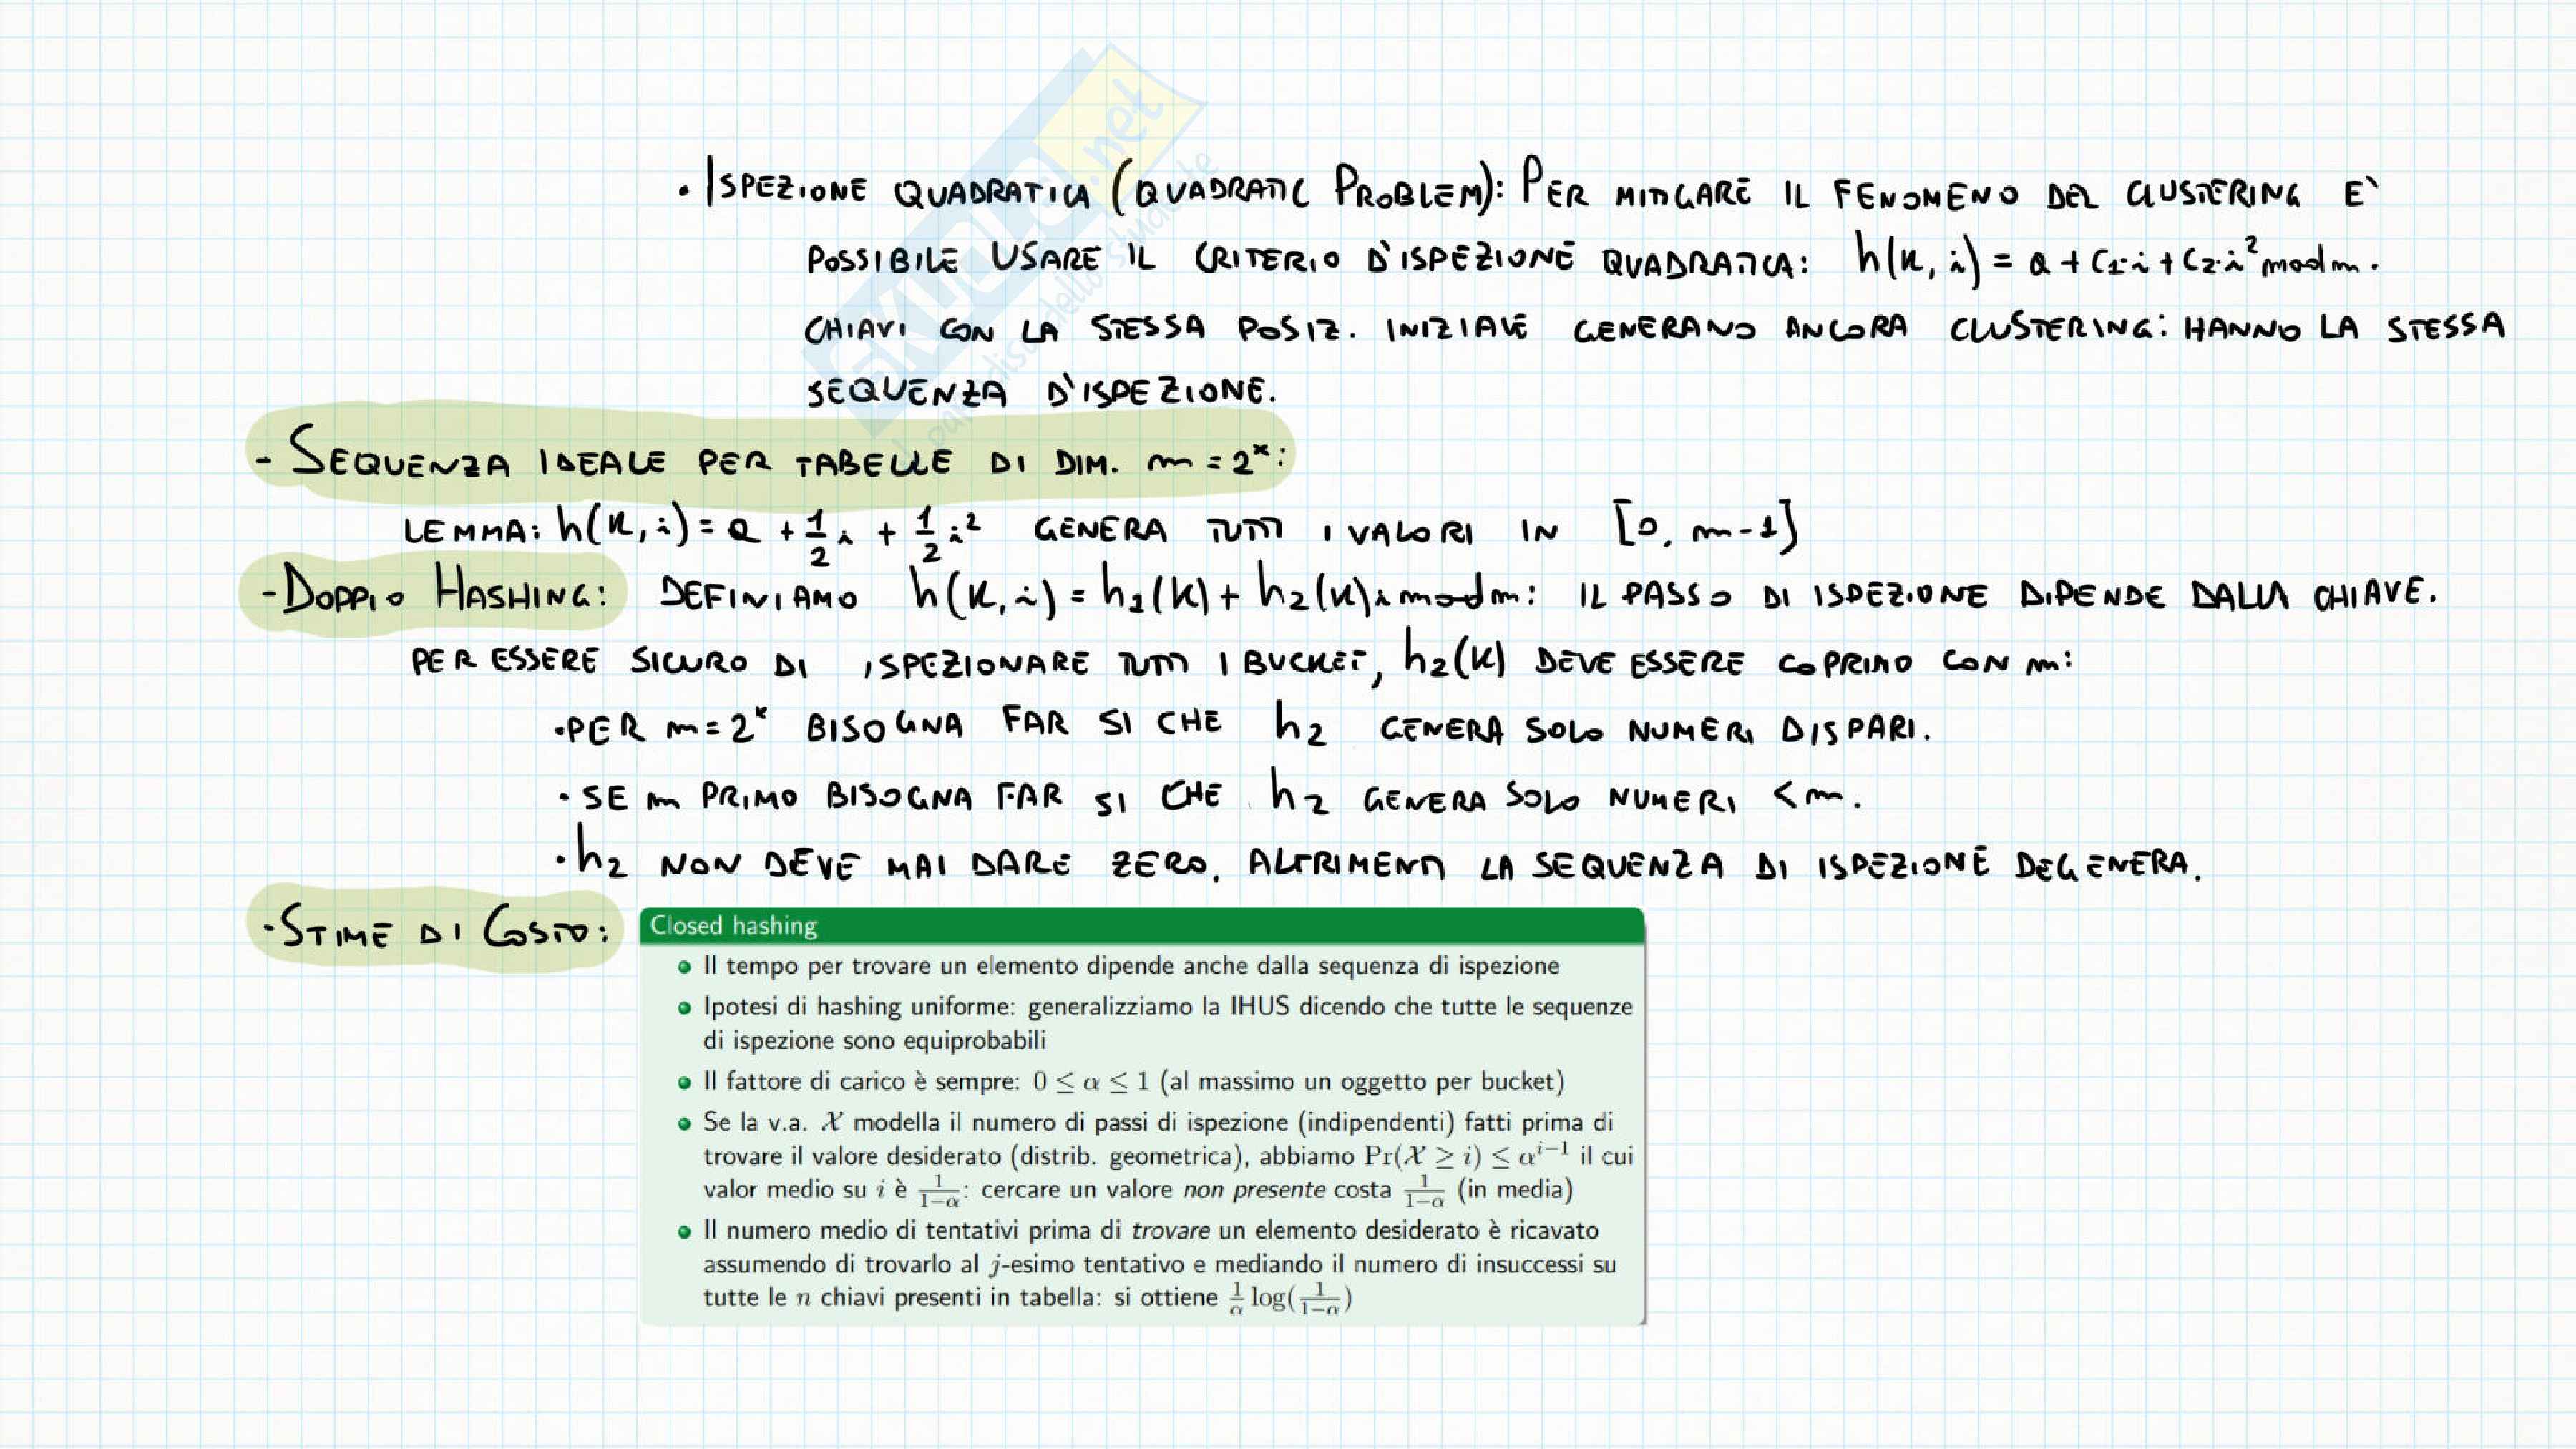 SKUOLA.net
il paradiso dello studente
• ISPEZIONE QUADRATICA (QUADRATIC PROBLEM): PER MITIGARE IL FENOMENO DEL CLUSTERING E`
POSSIBILE USARE IL CRITERIO D'ISPEZIONE QUADRATICA: h(k, i) = a + c₁·i + c₂·i² mod m.
CHIAVI CON LA STESSA POSIZ. INIZIALE GENERANO ANCORA CLUSTERING: HANNO LA STESSA
SEQUENZA D'ISPEZIONE.
- SEQUENZA IDEALE PER TABELLE DI DIM. m = 2ˣ:
LEMMA: h(k, i) = a + 1/2 i + 1/2 i² GENERA TUTTI I VALORI IN [0, m-1]
- DOPPIO HASHING: DEFINIAMO h(k, i) = h₁(k) + h₂(k)i mod m: IL PASSO DI ISPEZIONE DIPENDE DALLA CHIAVE.
PER ESSERE SICURO DI ISPEZIONARE TUTTI I BUCKET, h₂(k) DEVE ESSERE COPRIMO CON m:
• PER m = 2ˣ BISOGNA FAR SI CHE h₂ GENERA SOLO NUMERI DISPARI.
• SE m PRIMO BISOGNA FAR SI CHE h₂ GENERA SOLO NUMERI < m.
• h₂ NON DEVE MAI DARE ZERO, ALTRIMENTI LA SEQUENZA DI ISPEZIONE DEGENERA.
- STIME DI COSTO:
Closed hashing
• Il tempo per trovare un elemento dipende anche dalla sequenza di ispezione
• Ipotesi di hashing uniforme: generalizziamo la IHUS dicendo che tutte le sequenze
di ispezione sono equiprobabili
• Il fattore di carico è sempre: 0 ≤ α ≤ 1 (al massimo un oggetto per bucket)
• Se la v.a. 𝒳 modella il numero di passi di ispezione (indipendenti) fatti prima di
trovare il valore desiderato (distrib. geometrica), abbiamo Pr(𝒳 ≥ i) ≤ αⁱ⁻¹ il cui
valor medio su i è 1/(1−α): cercare un valore non presente costa 1/(1−α) (in media)
• Il numero medio di tentativi prima di trovare un elemento desiderato è ricavato
assumendo di trovarlo al j-esimo tentativo e mediando il numero di insuccessi su
tutte le n chiavi presenti in tabella: si ottiene 1/α log(1/(1−α))